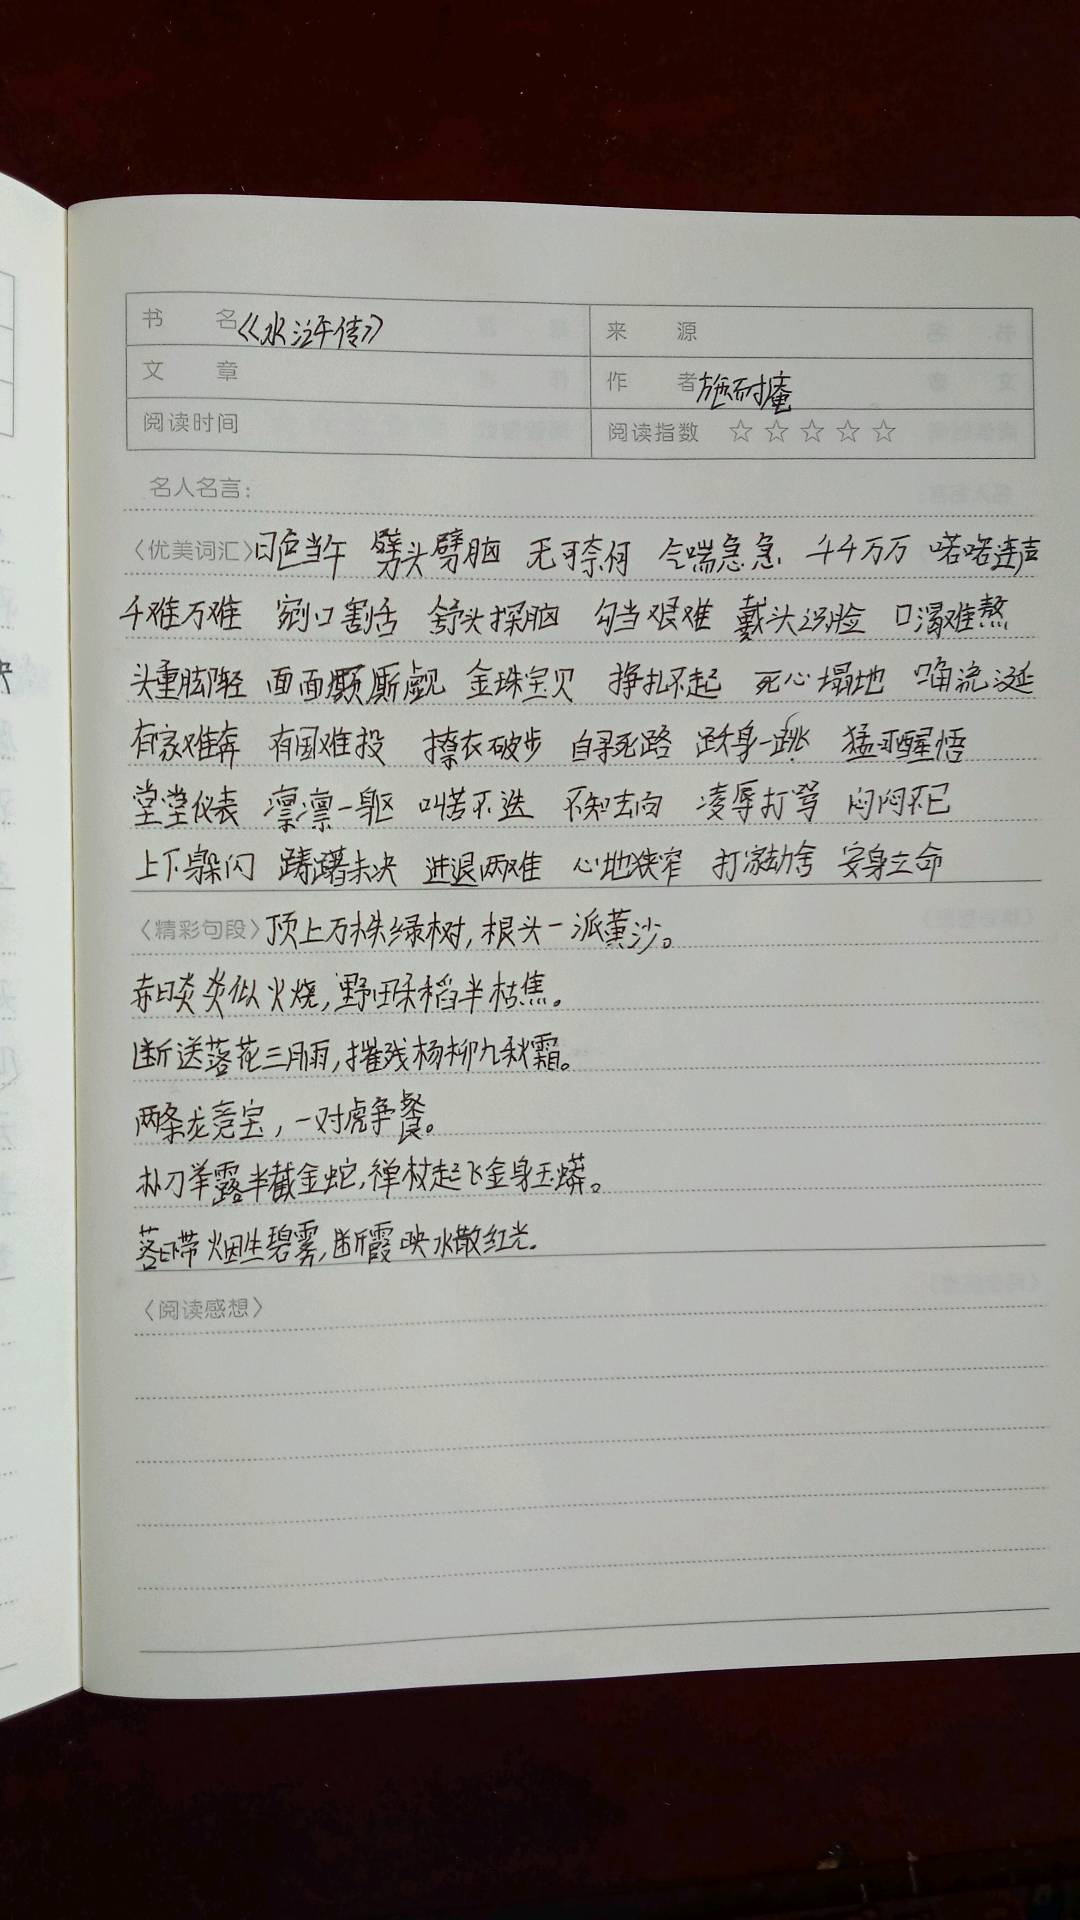 书 名 《水浒传》 来 源
文 章 作 者 施耐庵
阅读时间 阅读指数 ☆☆☆☆☆
名人名言：
〈优美词汇〉 日色当午 劈头劈脑 无可奈何 气喘急急 千千万万 喏喏连声
千难万难 剜口割舌 舒头探脑 勾当艰难 戴头识脸 口渴难熬
头重脚轻 面面厮觑 金珠宝贝 挣扎不起 死心塌地 涎
有家难奔 有国难投 撩衣破步 自寻死路 跃身一跳 猛可醒悟
堂堂仪表 凛凛一躯 叫苦不迭 不知去向 凌辱打骂 闷闷不已
上下躲闪 踌躇未决 进退两难 心地狭窄 打家劫舍 安身立命
〈精彩句段〉 顶上万株绿树，根头一派黄沙。
赤日炎炎似火烧，野田禾稻半枯焦。
断送落花三月雨，摧残杨柳九秋霜。
两条龙竞宝，一对虎争餐。
朴刀举露半截金蛇，禅杖起飞全身玉蟒。
落日带烟生碧雾，断霞映水散红光。
〈阅读感想〉